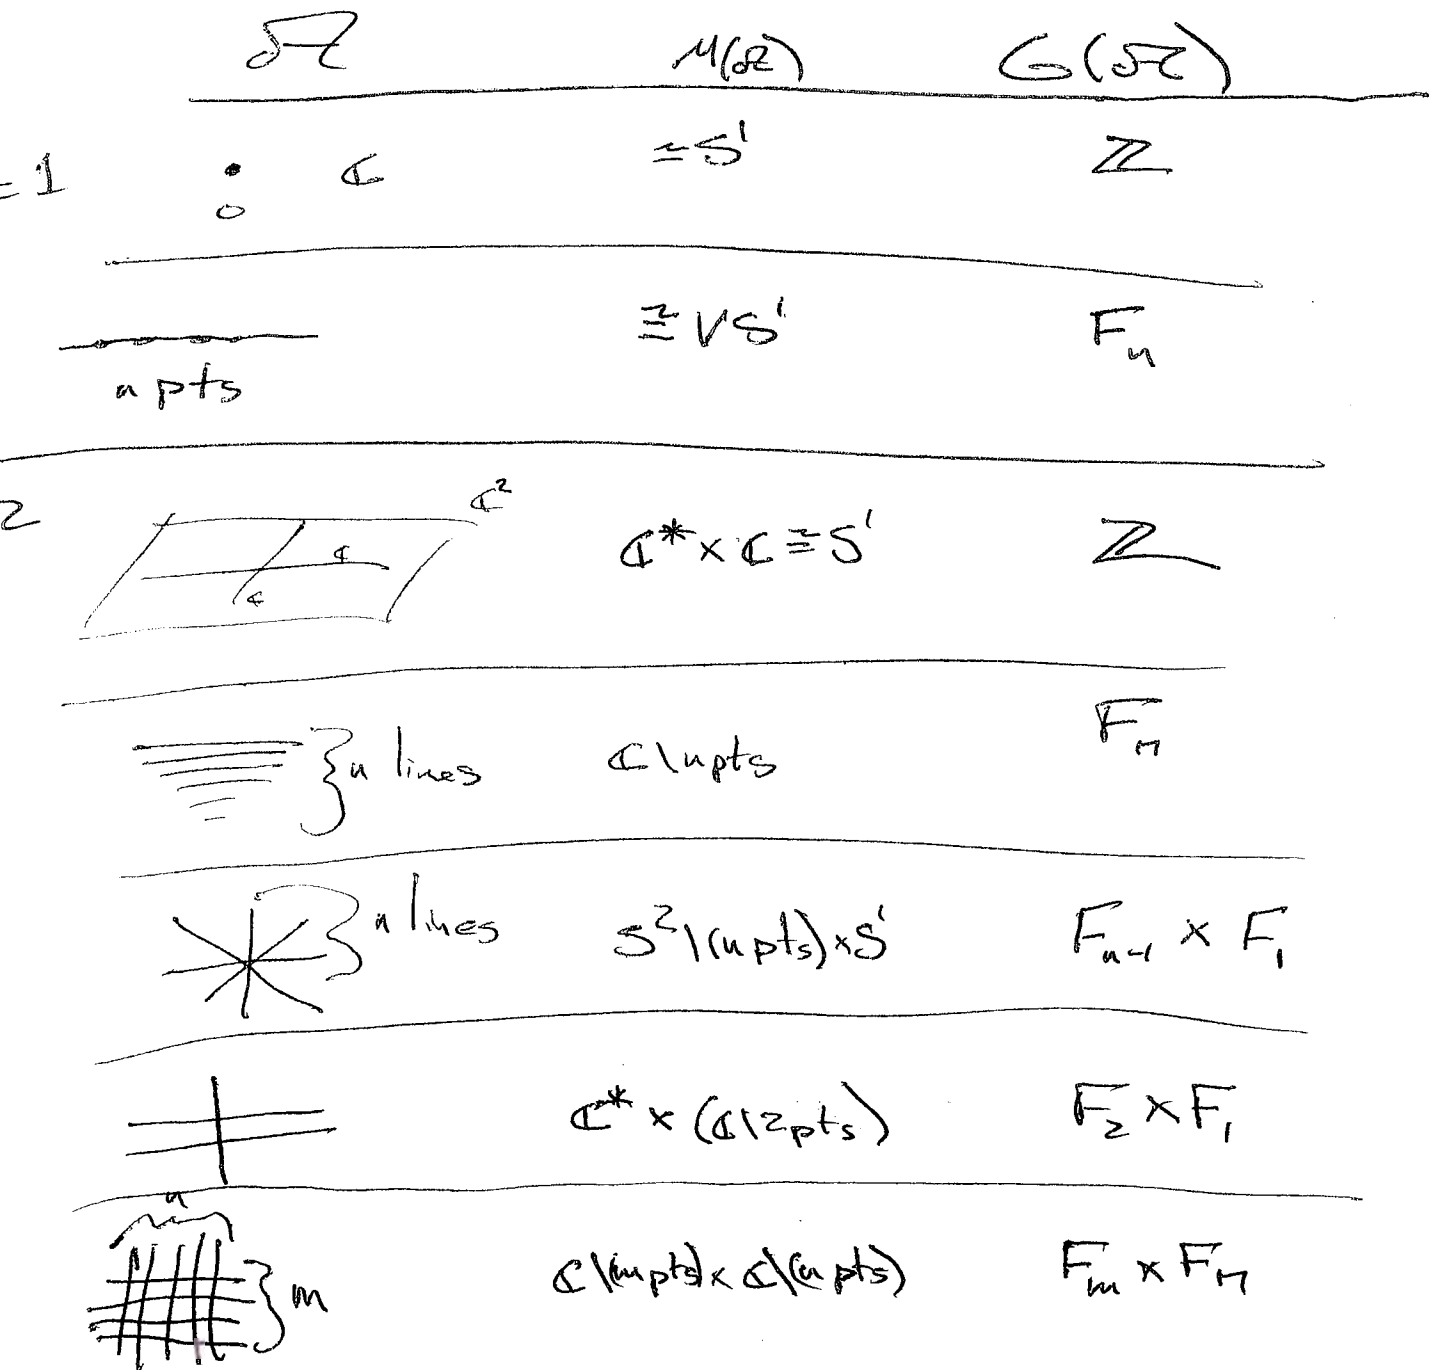 𝒜 M(𝒜) G(𝒜)
= 1 0 ℂ ≃ S¹ ℤ
n pts ≅ ∨S¹ Fₙ
2 ℂ² ℂ ℂ ℂ* × ℂ ≅ S¹ ℤ
n lines ℂ\n pts Fₙ
n lines S²\(n pts) × S¹ Fₙ₋₁ × F₁
ℂ* × (ℂ\2pts) F₂ × F₁
n m ℂ\(m pts) × ℂ\(n pts) Fₘ × Fₙ